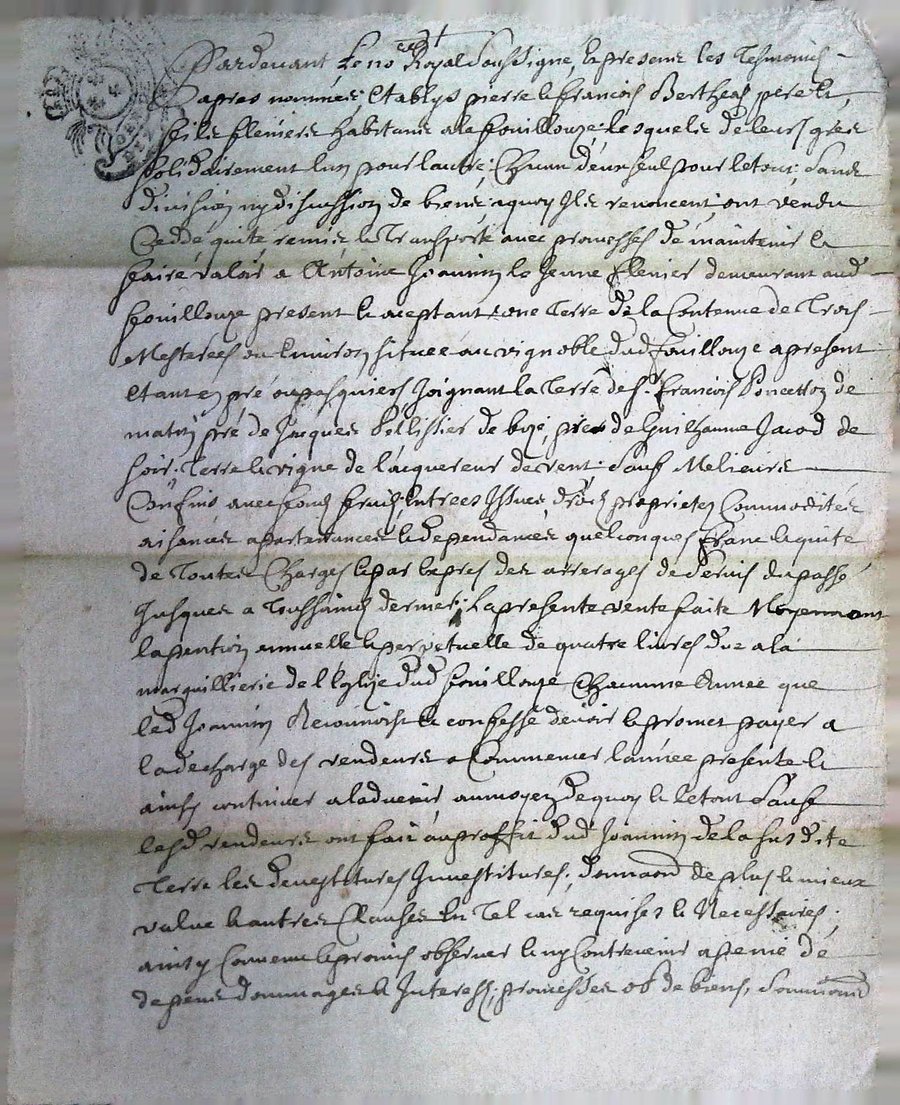 Pardevant le no.re Royal Soussigne, & presens les Tesmoins
apres nommes Etablys pierre & francois Bertheas pere &
fils habitans a la fouillouze lesquels de leurs gres
solidairement lun pour lautre, Chacun deux seul pour le tout, sans
division ny discussion de biens a quoy Ils renoncent, ont vendu
Cedde quitte remis & Transporté avec promesses de maintenir &
faire valoir a Antoine Joannin le Jeune demeurant aud
fouillouze present & aceptant une Terre de la Contenue de Trois
Mesterees ou Environ situee au vignoble dud fouillouze apresent
Etant en pré ou pasquiers Joignant la Terre de Sr francois Poncetton de
matin pré de Jacques Pellissier de bize, pré de Guilhaume Jacod de
soir, Terre & vigne de lacquereur de vent, Sauf Melieurs
Confins avec fond, fruits, Entrees Issues droits proprietes Commodités
aisances apartenances & dependances quelconques franc & quitte
de Toutes Charges & par Expres des arrerages de servis du passé
Jusques a Toussaints dernier; La presente vente faite Moyennant
la pention annuelle & perpetuelle de quatre livres due a la
marguillierie de l'Eglize dud fouillouze Chacunne Année que
led Joannin Reconnoist & confesse devoir & promet payer a
la decharge des vendeurs a Commencer lannée presente &
ainsy continuer a ladvenir au moyen de quoy & le tout Sauf
lesd vendeurs ont fait au proffit dud Joannin de la susdite
Terre les devestitures Investitures, donnaons de plus & mieux
value & autres Clauses En Tel cas requises & Necessaires,
ainsy Convenu & promis observer & ny Contrevenir a peine de
depens dommages & Interests, promesses ob de biens, Soumions